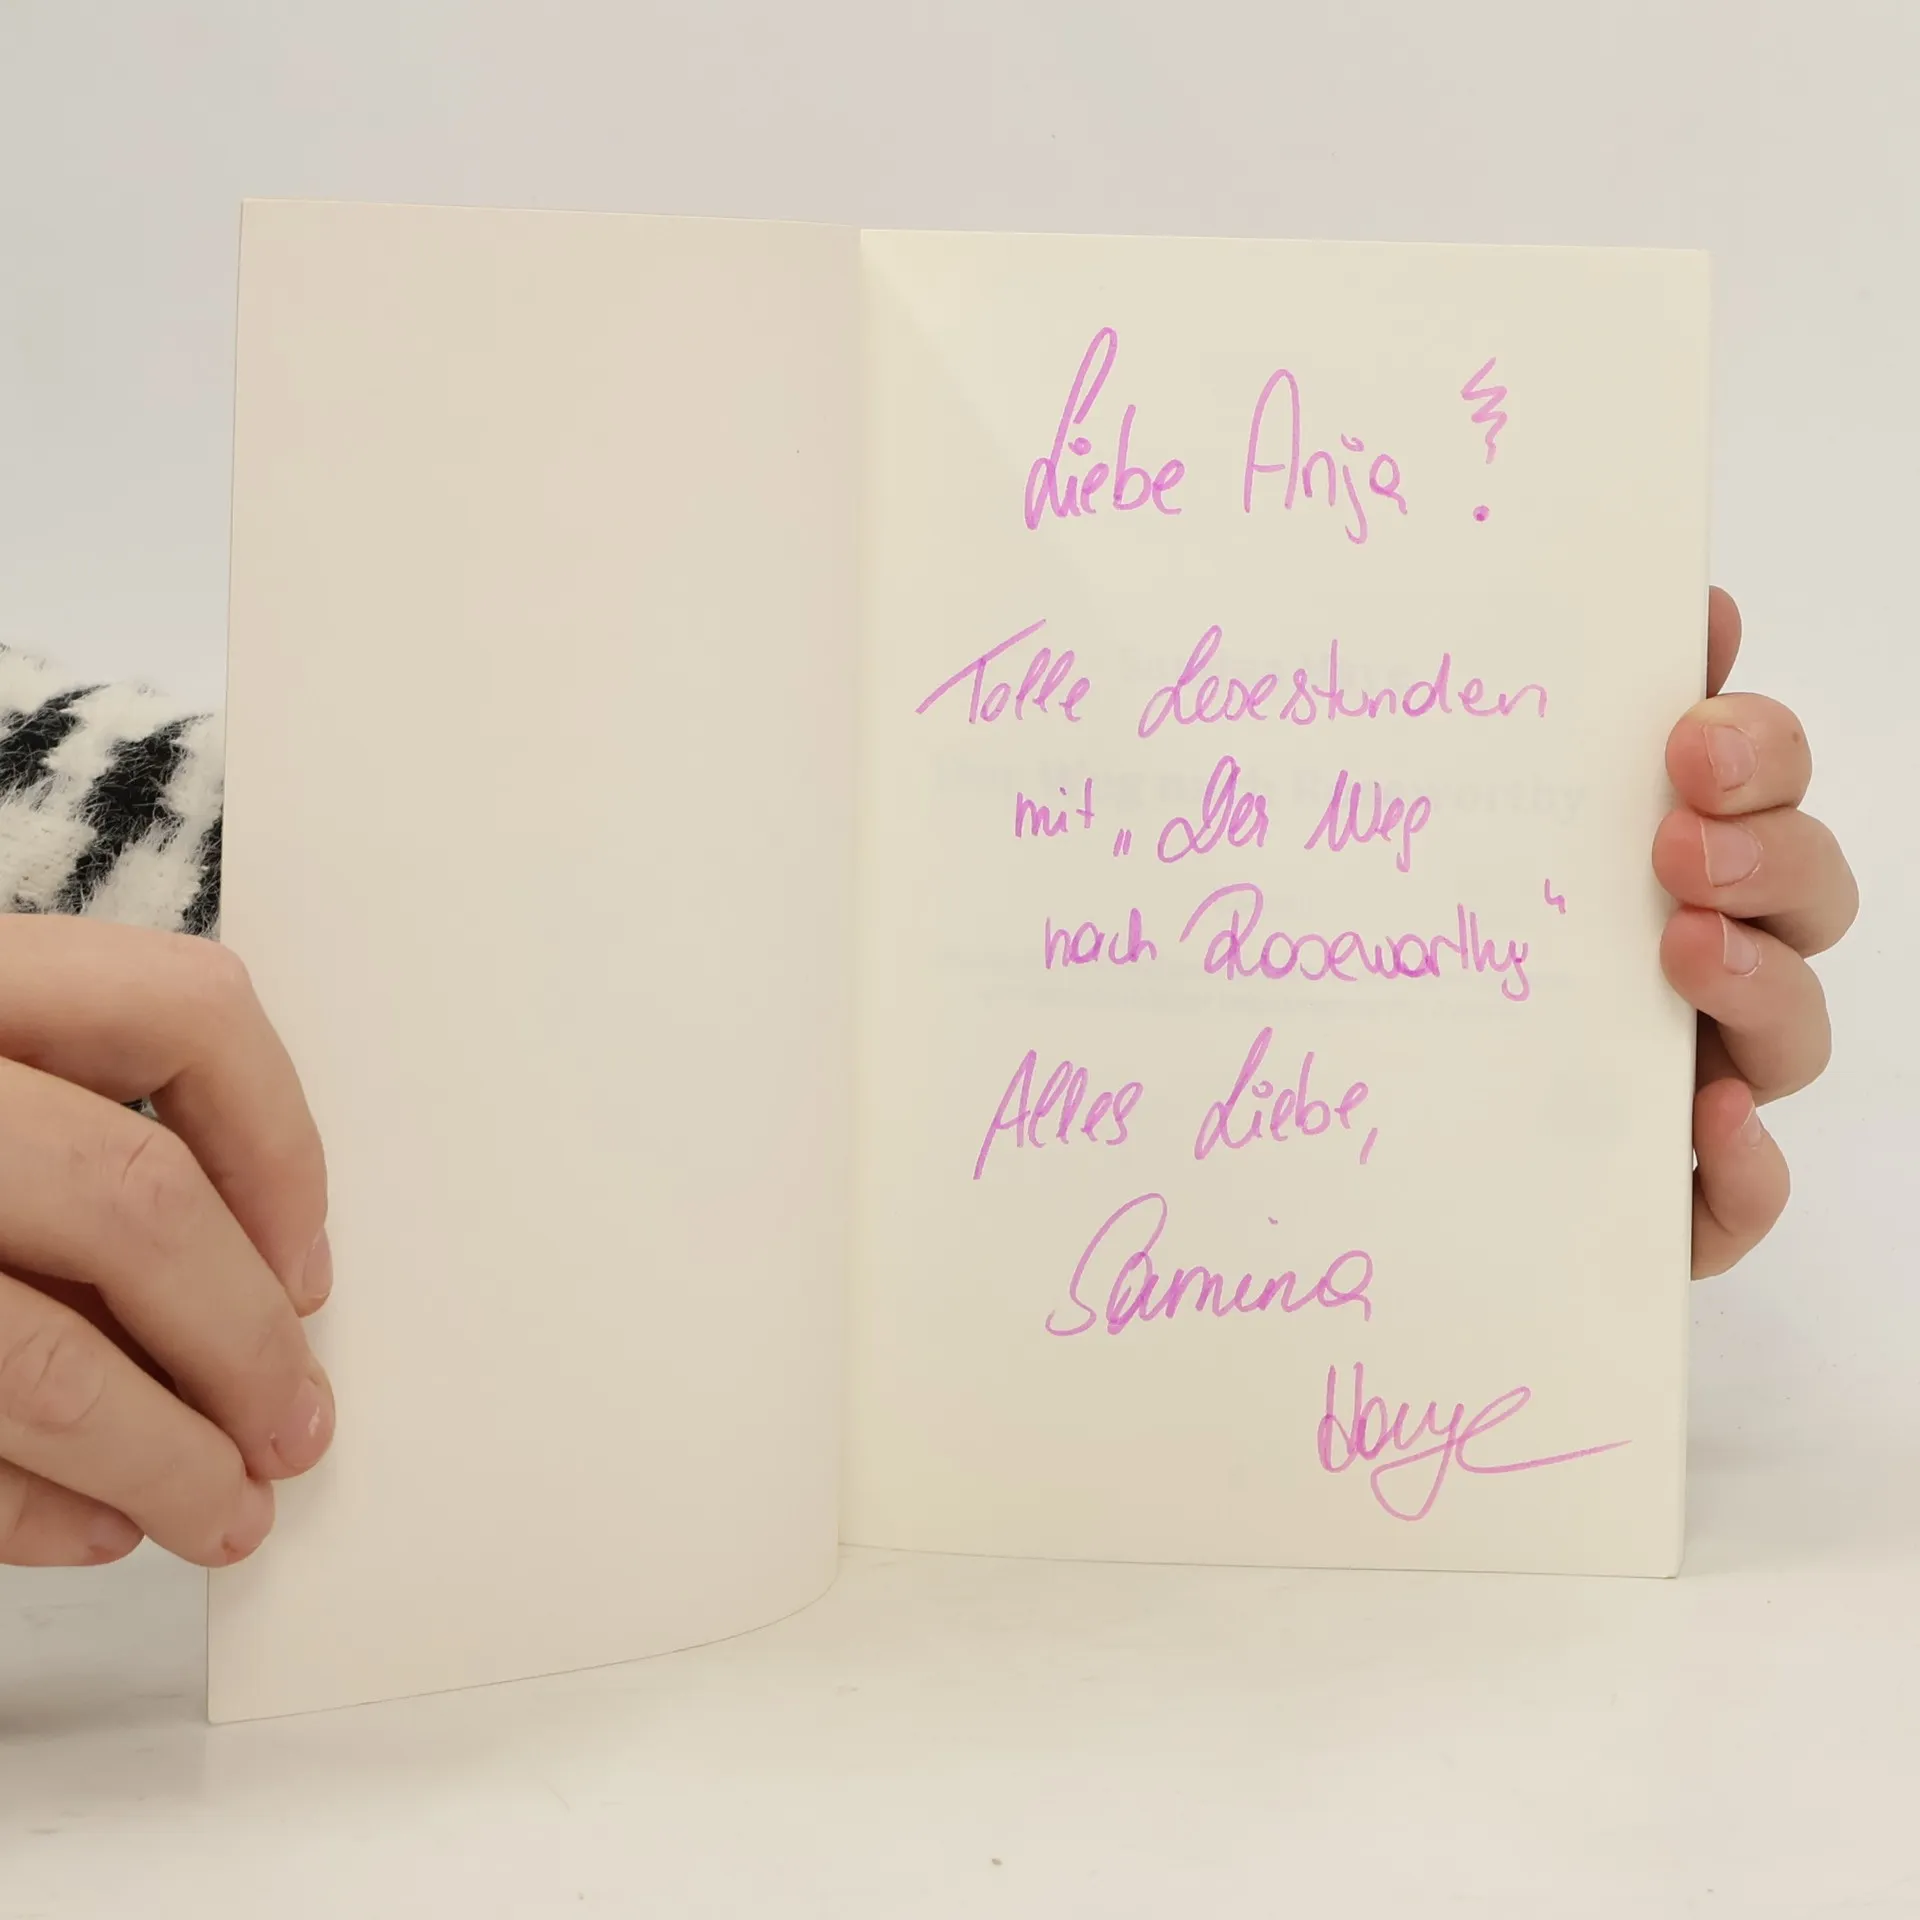 Liebe Anja !
Tolle Lesestunden
mit „Der Weg
nach Roseworthy“
Alles Liebe,
Samina
Haye